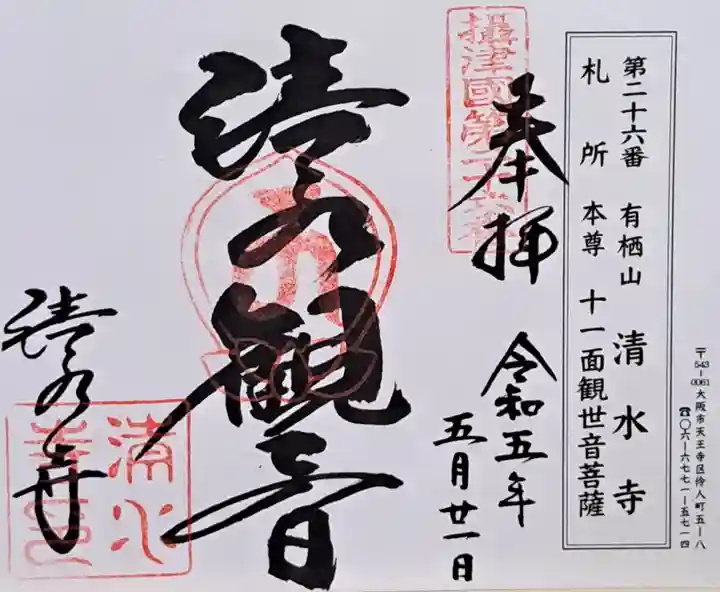 〒543-0061大阪市天王寺区伶人町五-八
☎〇六-六七七一-五七一四
第二十六番 有栖山 清水寺
札所 本尊 十一面観世音菩薩
奉拝
攝津國第二十六番
令和五年
五月廿一日
清水観音
清水寺
清水